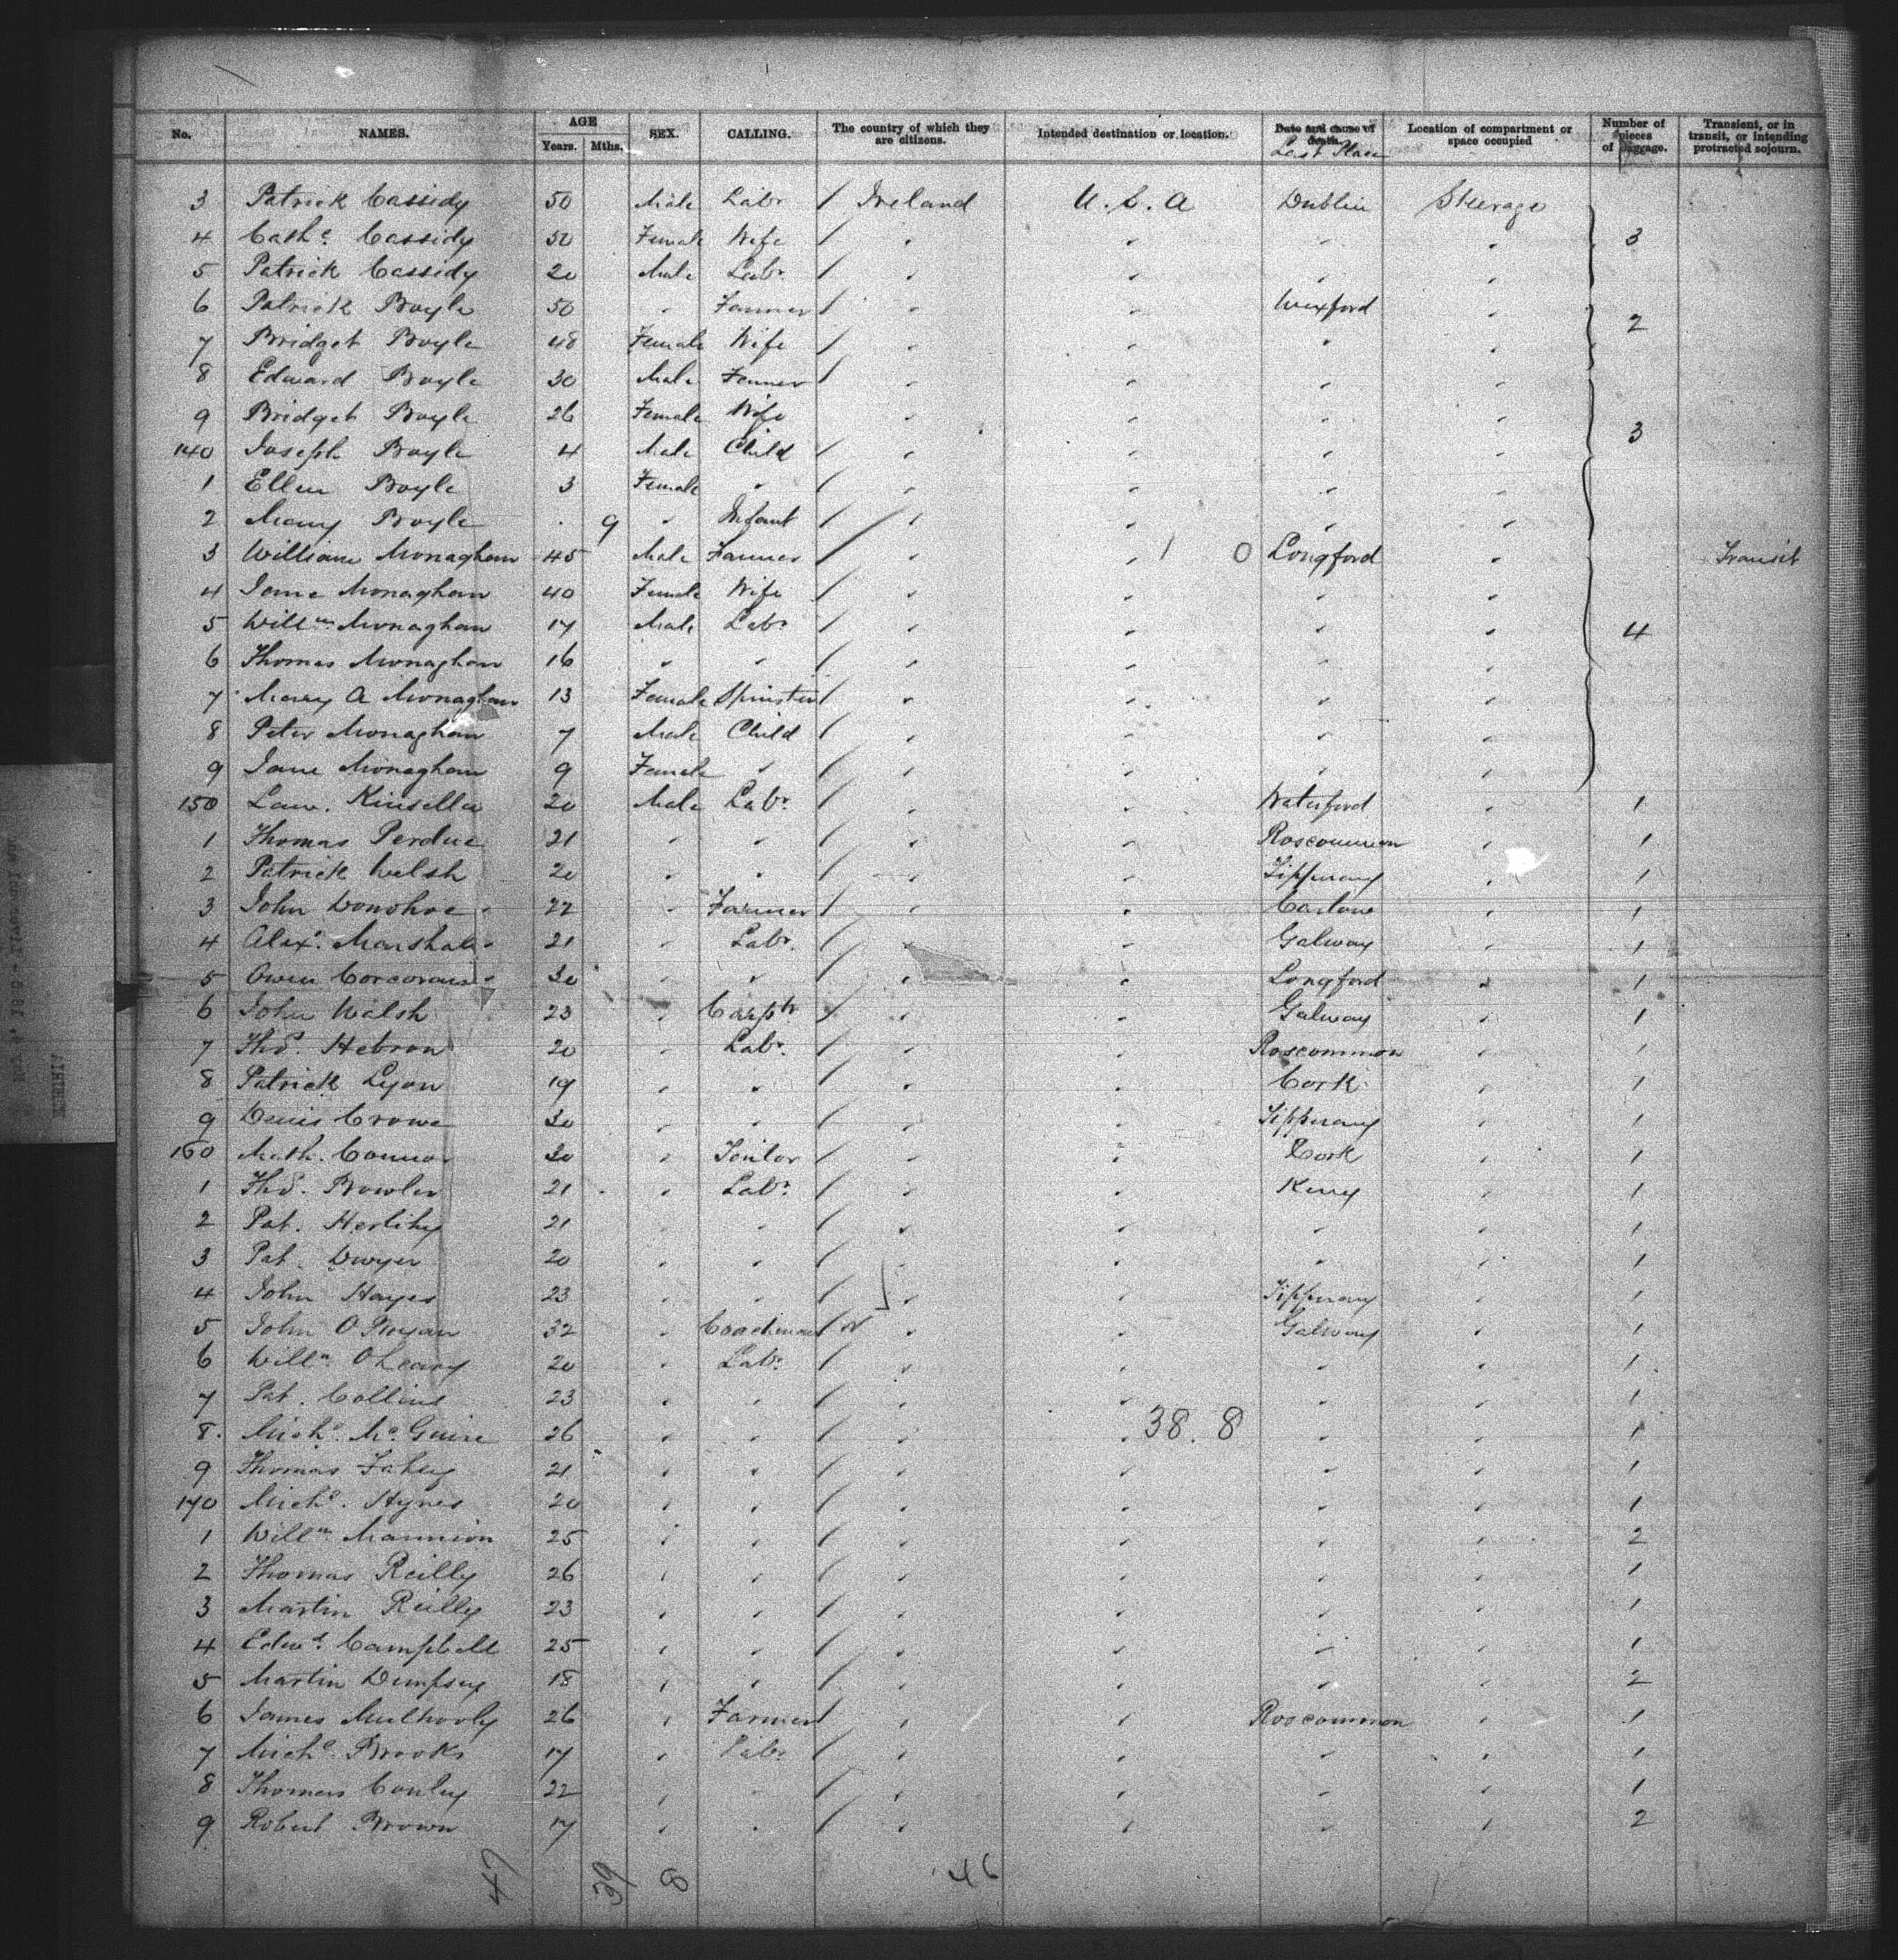 No. NAMES. AGE Years. Mths. SEX. CALLING. The country of which they are citizens. Intended destination or location. Date and cause of death. Last Place Location of compartment or space occupied Number of pieces of baggage. Transient, or in transit, or intending protracted sojourn.
3 Patrick Cassidy 50 Male Labr / Ireland U.S.A Dublin Steerage
4 Cathe Cassidy 50 Female Wife / 3
5 Patrick Cassidy 20 Male Labr /
6 Patrick Boyle 50 " Farmer / Wexford 2
7 Bridget Boyle 48 Female Wife /
8 Edward Boyle 30 Male Farmer /
9 Bridget Boyle 26 Female Wife 3
140 Joseph Boyle 4 Male Child /
1 Ellen Boyle 3 Female " /
2 Mary Boyle 9 " Infant /
3 William Monaghan 45 Male Farmer / 1 0 Longford Transit
4 Jane Monaghan 40 Female Wife /
5 Willm Monaghan 17 Male Labr / 4
6 Thomas Monaghan 16 " " /
7 Mary A Monaghan 13 Female Spinster /
8 Peter Monaghan 7 Male Child /
9 Jane Monaghan 9 Female " /
150 Law. Kinsella 20 Male Labr / Waterford 1
1 Thomas Perdue 21 " " / Roscommon 1
2 Patrick Welsh 20 " " / Tipperary 1
3 John Donohoe 22 " Farmer / Carlow 1
4 Alexr. Marshall 21 " Labr. / Galway 1
5 Owen Corcoran 30 " " / Longford 1
6 John Walsh 23 " Carptr / Galway 1
7 Thos. Hebron 20 " Labr. / Roscommon 1
8 Patrick Lyon 19 " " / Cork 1
9 Denis Crowe 30 " " / Tipperary 1
160 Math. Connor 30 " Tailor / Cork 1
1 Thos. Bowler 21 " Labr. / Kerry 1
2 Pat. Herlihy 21 " " / " 1
3 Pat. Dwyer 20 " " / " 1
4 John Hayes 23 " " / Tipperary 1
5 John O Bryan 32 " Coachman / Galway 1
6 Willm. OLeary 20 " Labr. / " 1
7 Pat. Collins 23 " " / " 1
8 Michl. McGuire 26 " " / 38. 8 " 1
9 Thomas Fahey 21 " " / " 1
170 Michl. Hynes 20 " " / " 1
1 Willm Mannion 25 " " / " 2
2 Thomas Reilly 26 " " / " 1
3 Martin Reilly 23 " " / " 1
4 Edwd. Campbell 25 " " / " 1
5 Martin Dempsey 18 " " / " 2
6 James Mulhooly 26 " Farmer / Roscommon 1
7 Michl. Brooks 17 " Labr / " 1
8 Thomas Conley 22 " " / " 1
9 Robert Brown 17 " " / " 2
47 39 8 46